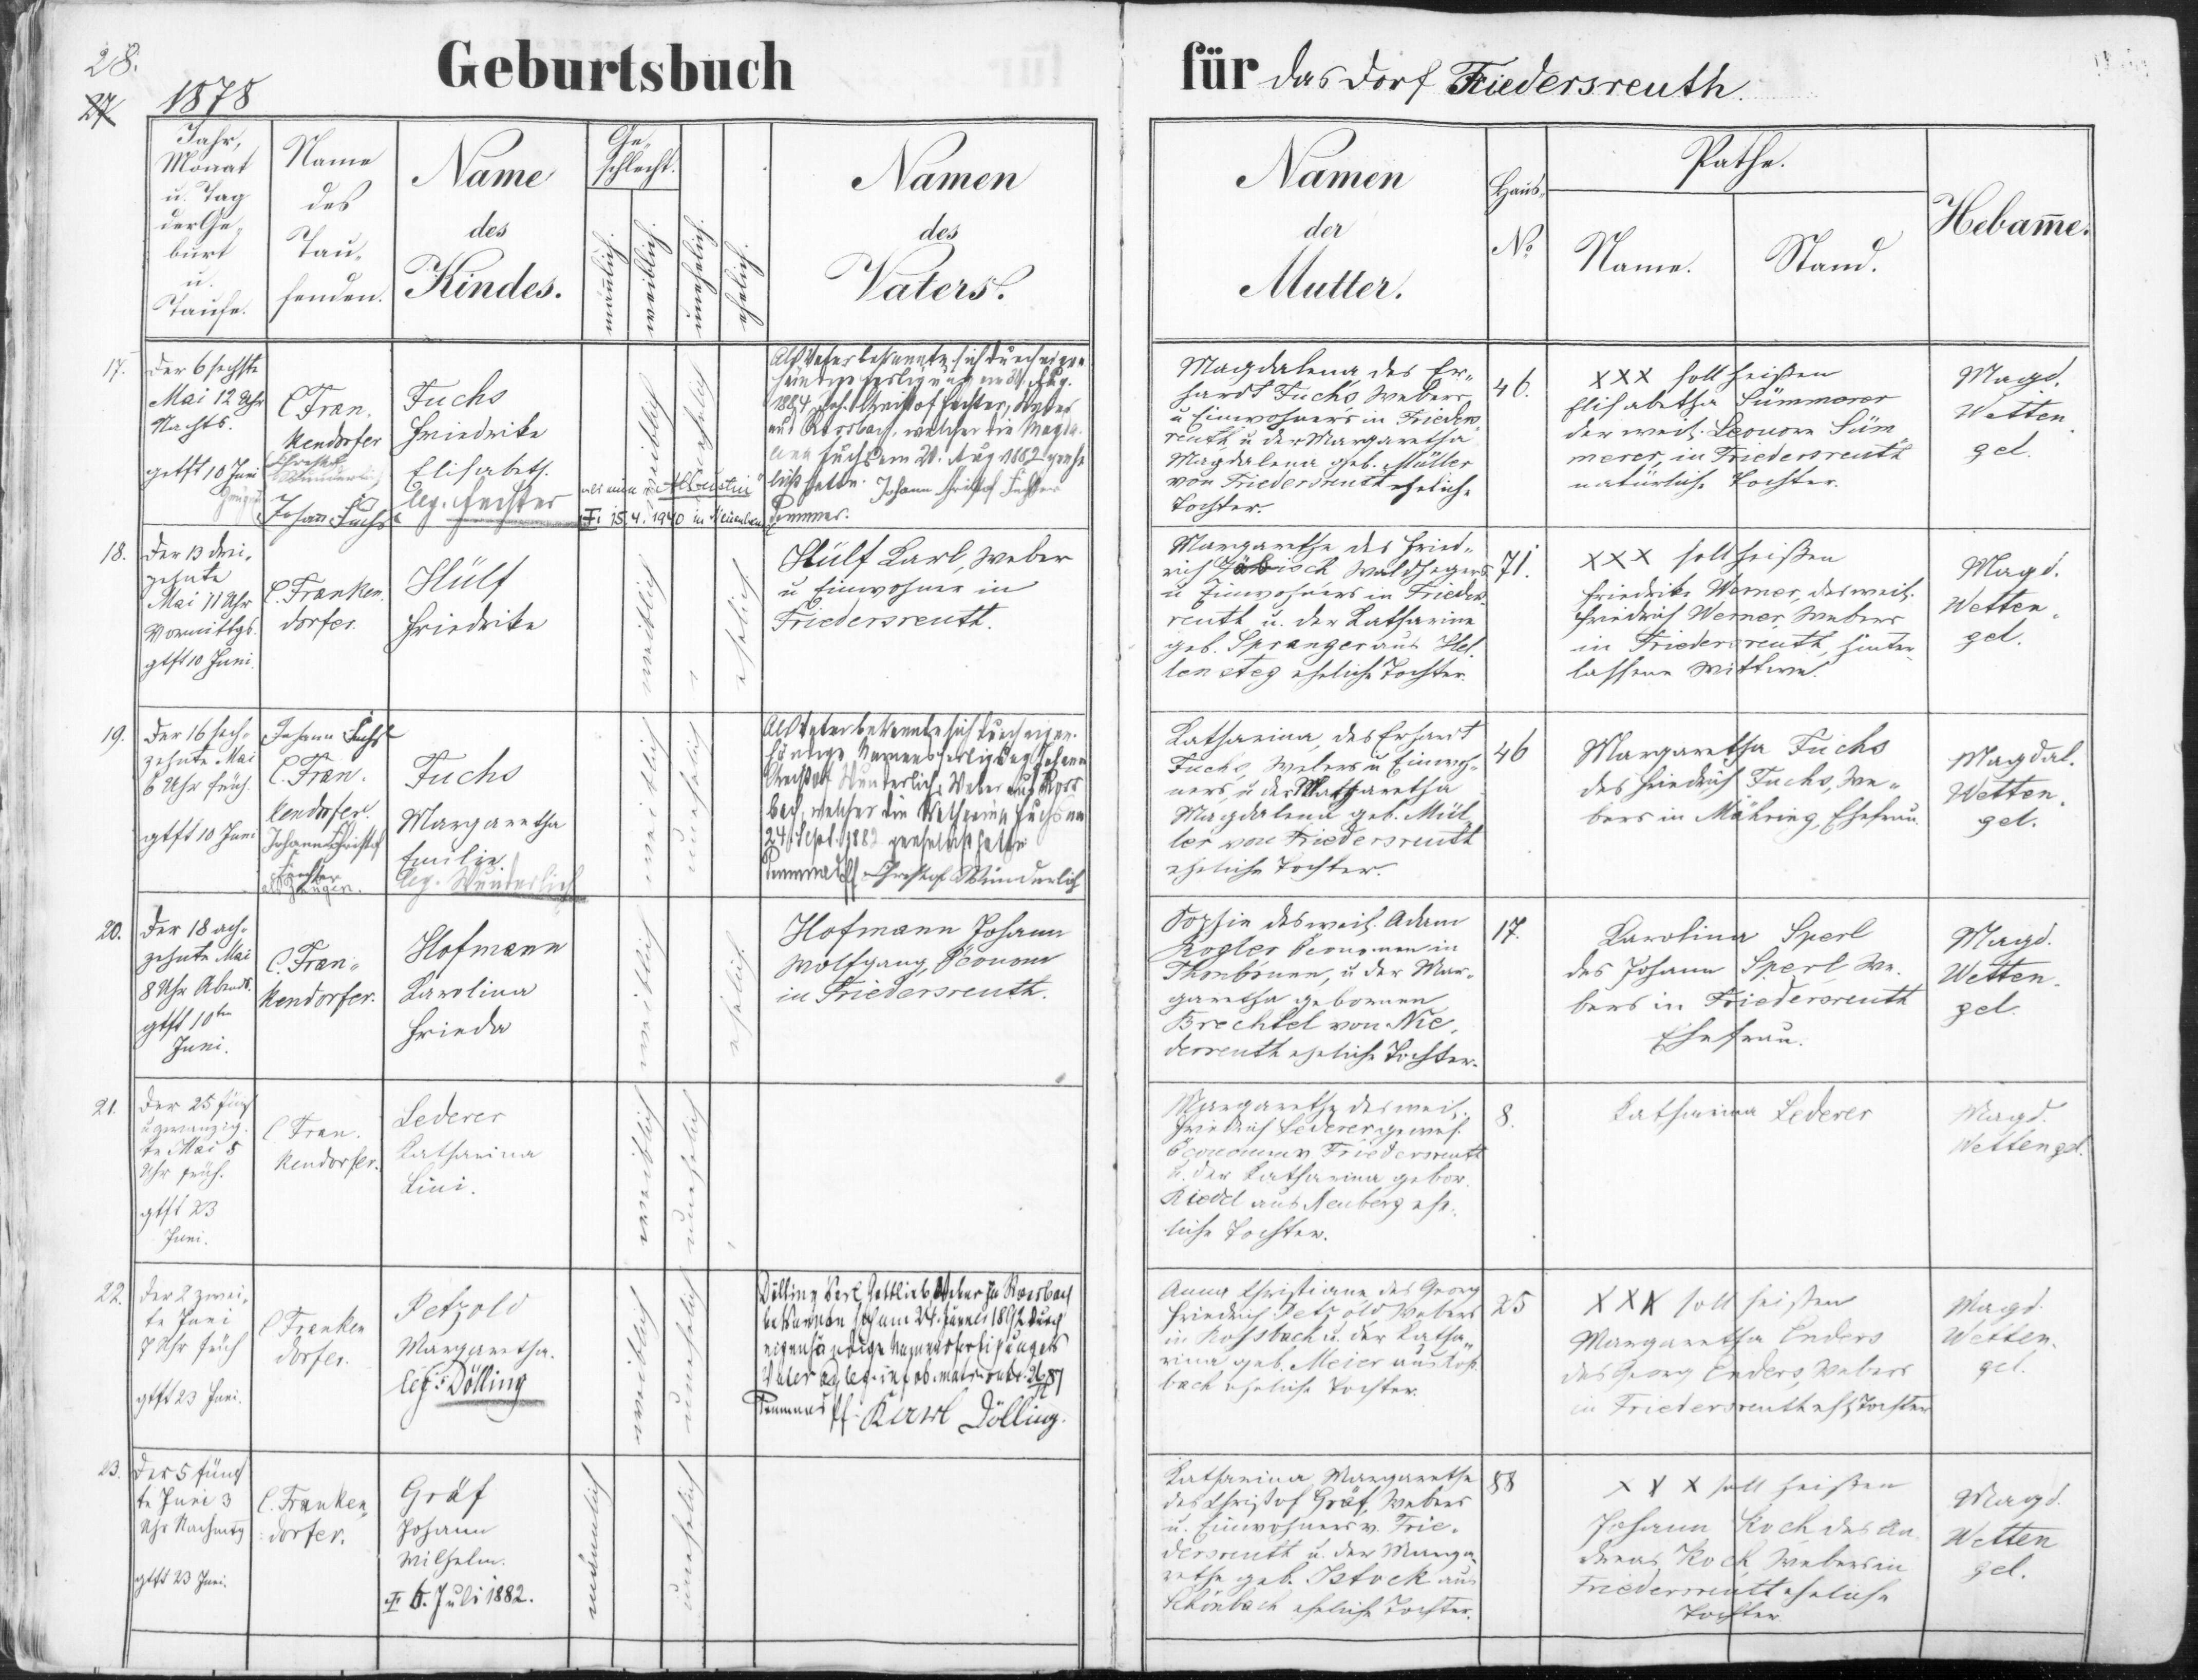 28.
27
1878
Geburtsbuch
für das Dorf Friedersreuth.
Jahr,
Monat
u. Tag
der Ge-
burt
u.
Taufe.
Name
des
Tau-
fenden.
Name
des
Kindes.
Ge-
schlecht.
mänlich.
weiblich.
unehelich.
ehelich.
Namen
des
Vaters.
Namen
der
Mutter.
Haus-
No
Pathe.
Name.
Stand.
Hebame.
17.
Der 6 sechste
Mai 12 Uhr
Nachts.
getft 10 Juni
C. Fran-
kendorfer
Christof
Wunderlich
Johann Fuchs
Fuchs
Friedrike
Elisabeth.
leg. Fechter
weiblich
unehelich
15. 4. 1940 in
Als Vater bekannte sich durch eigen-
händige Fertigung am 20. Aug.
1884 Joh. Kristof Fechter, Weber
aus Rossbach, welcher die Magda-
lena Fuchs am 20. Aug. 1882 geehe-
licht hatte. Johann Kristof Fechter
Magdalena des Er-
hardt Fuchs, Webers
u Einwohners in Frieders-
reuth u der Margaretha
Magdalena geb. Müller
von Friedersreuth eheliche
Tochter.
46.
XXX soll heißen
Elisabetha Sümmerer
der weil. Leonore Süm-
merer, in Friedersreuth
natürliche Tochter.
Magd.
Wetten-
gel.
18.
Der 13 drei-
zehnte
Mai 11 Uhr
Vormittgs.
gtft 10 Juni.
C. Franken-
dorfer
Hülf
Friedrike
weiblich
ehelich
Hülf Karl, Weber
u Einwohner in
Friedersreuth.
Margaretha des Fried-
rich Jäckisch Waldhegers
u Einwohners in Frieders-
reuth u. der Katharina
geb. Spranger aus Hel-
lensteg eheliche Tochter.
71.
XXX soll heißen
Friedrike Werner, des weil.
Friedrich Werner, Webers
in Friedersreuth, hinter-
lassene Wittwe.
Magd.
Wetten-
gel.
19.
Der 16 sech-
zehnte Mai
6 Uhr früh.
gtft 10 Juni
Johann Fuchs
C. Fran-
kendorfer.
Johann Christof
Fechter
als Zeugen.
Fuchs
Margaretha
Emilie
leg. Wunderlich
weiblich
unehelich
Als Vater bekannte sich durch eigen-
händige Namensfertigung Johann
Kristof Wunderlich, Weber aus Ross-
bach, welcher die Katharina Fuchs am
24. Sept. 1882 geehelicht hatte
Christof Wunderlich
Katharina, des Erhardt
Fuchs, Webers u Einwoh-
ners, u der Margaretha
Magdalena geb. Mül-
ler von Friedersreuth
eheliche Tochter.
46
Margaretha Fuchs
des Friedrich Fuchs, We-
bers in Mähring, Ehefrau.
Magdal.
Wetten-
gel.
20.
Der 18 ach-
zehnte Mai
8 Uhr Abends.
gtft 10ten
Juni.
C. Fran-
kendorfer.
Hofmann
Karolina
Frieda
weiblich
ehelich.
Hofmann Johann
Wolfgang, Öconom
in Friedersreuth.
Sophie des weil. Adam
Rogler Öconomen in
Thonbrunn, u der Mar-
garetha gebornen
Brechtel von Nie-
derreuth eheliche Tochter.
17.
Karolina Sperl
des Johann Sperl We-
bers in Friedersreuth
Ehefrau.
Magd.
Wetten-
gel.
21.
Der 25 fünf
u zwanzig-
te Mai 5
Uhr früh.
gtft 23
Juni.
C. Fran-
kendorfer.
Lederer
Katharina
Lini.
weiblich
unehelich
Margaretha des weil.
Friedrich Lederer gewes.
Öconomen v. Friedersreuth
u. der Katharina gebor.
Riedel aus Neuberg ehe-
liche Tochter.
8.
Katharina Lederer
Magd.
Wettengel.
22.
Der 2 zwei-
te Juni
7 Uhr früh
gtft 23 Juni.
C. Franken
dorfer.
Petzold
Margaretha.
leg: Dölling
weiblich
unehelich
Dölling Karl Gottlieb Weber in Rossbach
bekannte sich am 24. 1892 durch
eigenhändige Namensfertigung als
Vater
Karl Dölling.
Anna Christiana, des Georg
Friedrich Petzold, Webers
in Rossbach u. der Katha-
rina geb. Meier aus Roß-
bach eheliche Tochter.
25
XXX soll heißen
Margaretha Enders
des Georg Enders, Webers
in Friedersreuth ehl. Tochter
Magd.
Wetten-
gel.
23.
Der 5 fünf-
te Juni 3
Uhr Nachmttg
gtft 23 Juni.
C. Franken-
dorfer.
Gräf
Johann
Wilhelm.
6. Juli 1882.
männlich
unehelich
Katharina Margaretha
des Christof Gräf, Webers
u. Einwohners v. Frie-
dersreuth u. der Marga-
retha geb. Istock aus
Schönbach eheliche Tochter.
88
XXX soll heißen
Johann Koch des An-
dreas Koch, Webers in
Friedersreuth eheliche
Tochter
Magd.
Wetten
gel.